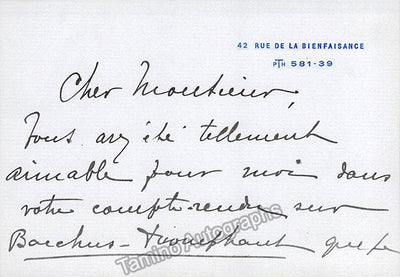 42 RUE DE LA BIENFAISANCE
PTH 581-39
Cher Monsieur,
Vous avez été tellement
aimable pour moi dans
votre compte-rendu sur
Bacchus-triomphant que je
Tamino Autographs